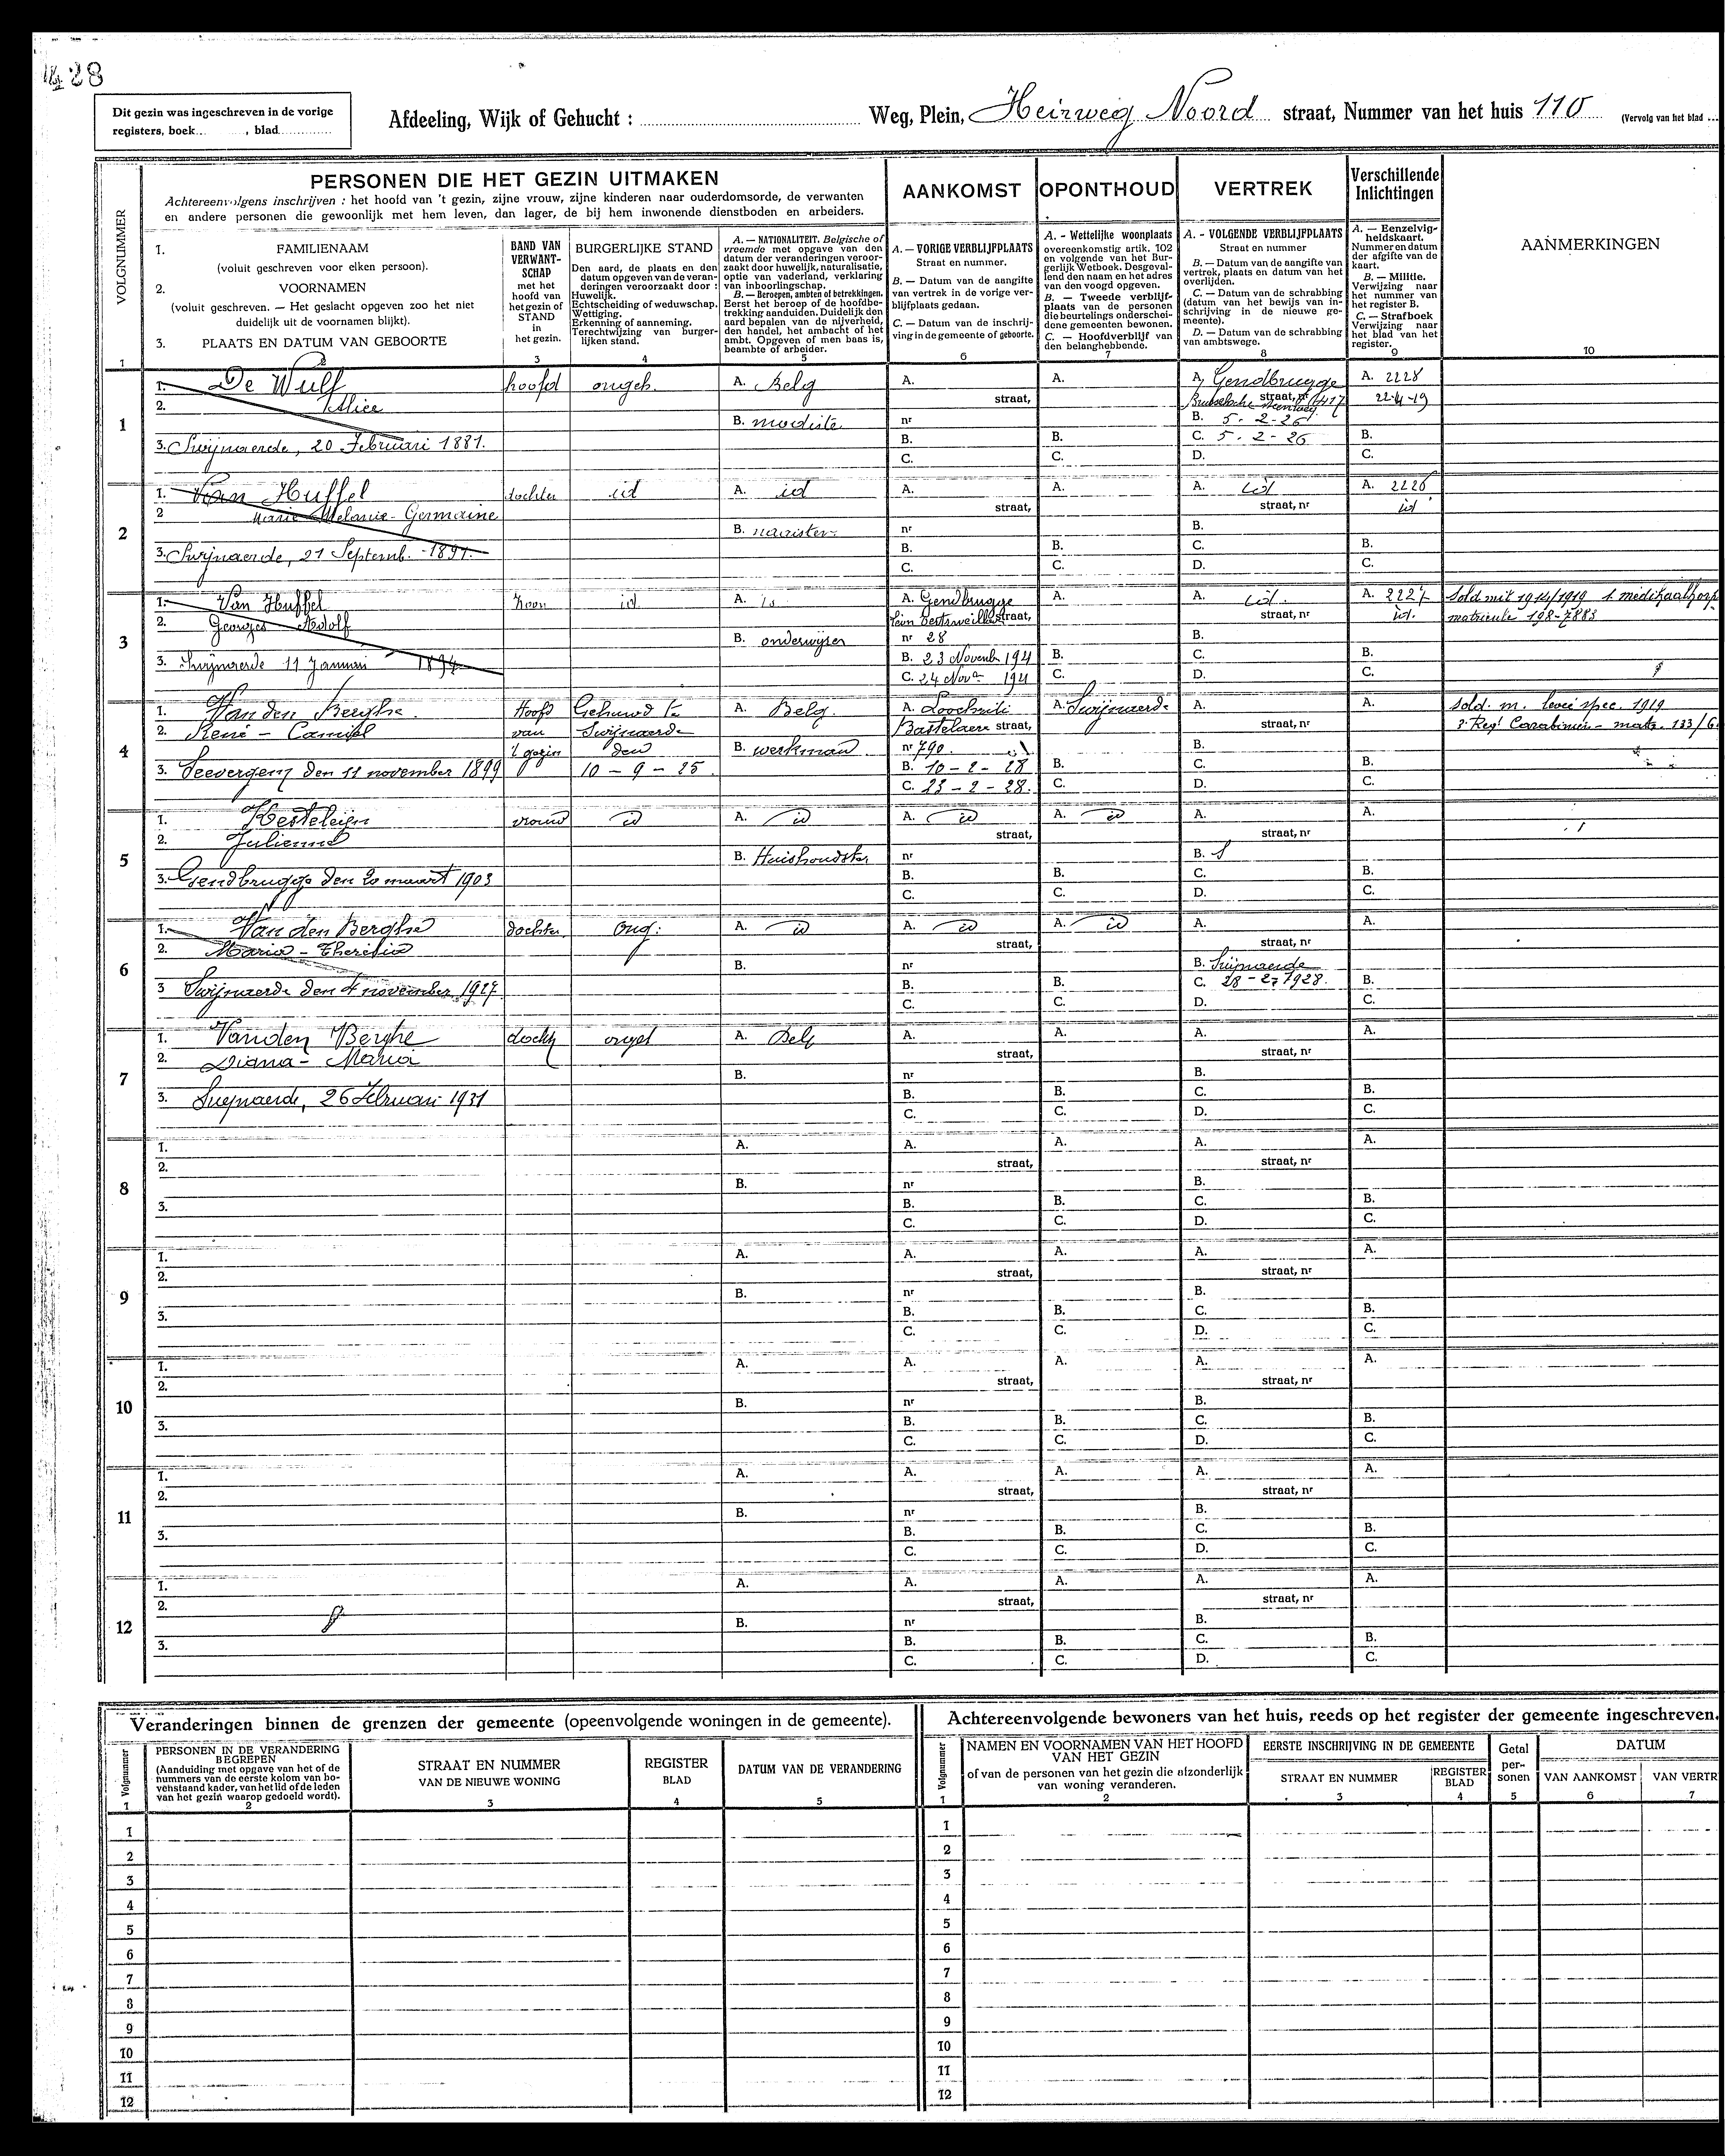 428
Dit gezin was ingeschreven in de vorige
registers, boek..., blad...
Afdeeling, Wijk of Gehucht :
Weg, Plein, Heirweg Noord straat, Nummer van het huis 110
(Vervolg van het blad
VOLGNUMMER
PERSONEN DIE HET GEZIN UITMAKEN
Achtereenvolgens inschrijven : het hoofd van 't gezin, zijne vrouw, zijne kinderen naar ouderdomsorde, de verwanten
en andere personen die gewoonlijk met hem leven, dan lager, de bij hem inwonende dienstboden en arbeiders.
AANKOMST
OPONTHOUD
VERTREK
Verschillende
Inlichtingen
AANMERKINGEN
1. FAMILIENAAM
(voluit geschreven voor elken persoon).
2. VOORNAMEN
(voluit geschreven. — Het geslacht opgeven zoo het niet
duidelijk uit de voornamen blijkt).
3. PLAATS EN DATUM VAN GEBOORTE
BAND VAN
VERWANT-
SCHAP
met het
hoofd van
het gezin of
STAND
in
het gezin.
BURGERLIJKE STAND
Den aard, de plaats en den
datum opgeven van de veran-
deringen veroorzaakt door :
Huwelijk.
Echtscheiding of weduwschap.
Wettiging.
Erkenning of aanneming.
Terechtwijzing van burger-
lijken stand.
A. — NATIONALITEIT. Belgische of
vreemde met opgave van den
datum der veranderingen veroor-
zaakt door huwelijk, naturalisatie,
optie van vaderland, verklaring
van inboorlingschap.
B. — Beroepen, ambten of betrekkingen.
Eerst het beroep of de hoofdbe-
trekking aanduiden. Duidelijk den
aard bepalen van de nijverheid,
den handel, het ambacht of het
ambt. Opgeven of men baas is,
beambte of arbeider.
A. — VORIGE VERBLIJFPLAATS
Straat en nummer.
B. — Datum van de aangifte
van vertrek in de vorige ver-
blijfplaats gedaan.
C. — Datum van de inschrij-
ving in de gemeente of geboorte.
A. - Wettelijke woonplaats
overeenkomstig artik. 102
en volgende van het Bur-
gerlijk Wetboek. Desgeval-
lend den naam en het adres
van den voogd opgeven.
B. — Tweede verblijf-
plaats van de personen
die beurtelings onderschei-
dene gemeenten bewonen.
C. — Hoofdverblijf van
den belanghebbende.
A. - VOLGENDE VERBLIJFPLAATS
Straat en nummer
B. — Datum van de aangifte van
vertrek, plaats en datum van het
overlijden.
C. — Datum van de schrabbing
(datum van het bewijs van in-
schrijving in de nieuwe ge-
meente).
D. — Datum van de schrabbing
van ambtswege.
A. — Eenzelvig-
heidskaart.
Nummer en datum
der afgifte van de
kaart.
B. — Militie.
Verwijzing naar
het nummer van
het register B.
C. — Strafboek
Verwijzing naar
het blad van het
register.
1 2 3 4 5 6 7 8 9 10
1
1. De Wulf hoofd ongeh. A. Belg A. A. A. Gendbrugge A. 2228
2. Alice straat, Brusselsche steenweg straat, nr 417
B. modiste nr B. 5-2-26
3. Swijnaerde, 20 Februari 1881. B. B. C. 5-2-26 B.
C. C. D. C.
2
1. Van Huffel dochter id A. id A. A. A. id A. 2226
2 Marie-Melanie-Germaine straat, straat, nr id
B. naaister nr B.
3. Swijnaerde, 21 Septemb. 1891. B. B. C. B.
C. C. D. C.
3
1. Van Huffel zoon id A. id A. Gendbrugge A. A. id. A. 2227 Sold mil 1914/1919
2. Georges Adolf straat, straat, nr id. matricule 198-7883
B. onderwijzer nr 28 B.
3. Swijnaerde 11 Januari B. 23 Novemb 1921 B. C. B.
C. 24 Nov 1921 C. D. C.
4
1. Van den Berghe Hoofd Gehuwd te A. Belg. A. Loochristi A. Swijnaerde A. A. Sold. m. levée spec. 1919
2. René - Camiel van Swijnaerde straat, straat, nr
't gezin den B. werkman nr 790. B.
3. Seevergem den 11 november 1899 10-9-25. B. 10-2-28 B. C. B.
C. 23-2-28. C. D. C.
5
1. Hesteleijn vrouw id A. id A. id A. id A. A.
2. Julienne straat, straat, nr
B. Huishoudster nr B.
3. Gendbrugge den 20 maart 1903 B. B. C. B.
C. C. D. C.
6
1. Van den Berghe dochter ong: A. id A. id A. id A. A.
2. Maria - Theresia straat, straat, nr
B. nr B. Swijnaerde
3 Swijnaerde den 4 november 1927 B. B. C. B.
C. C. D. C.
7
1. Vanden Berghe docht A. Belg A. A. A. A.
2. Diana - Maria straat, straat, nr
B. nr B.
3. Swijnaerde, 26 Februari 1931 B. B. C. B.
C. C. D. C.
8
1. A. A. A. A. A.
2. straat, straat, nr
B. nr B.
3. B. B. C. B.
C. C. D. C.
9
1. A. A. A. A. A.
2. straat, straat, nr
B. nr B.
3. B. B. C. B.
C. C. D. C.
10
1. A. A. A. A. A.
2. straat, straat, nr
B. nr B.
3. B. B. C. B.
C. C. D. C.
11
1. A. A. A. A. A.
2. straat, straat, nr
B. nr B.
3. B. B. C. B.
C. C. D. C.
12
1. A. A. A. A. A.
2. straat, straat, nr
B. nr B.
3. B. B. C. B.
C. C. D. C.
Veranderingen binnen de grenzen der gemeente (opeenvolgende woningen in de gemeente).
Volgnummer
PERSONEN IN DE VERANDERING
BEGREPEN
(Aanduiding met opgave van het of de
nummers van de eerste kolom van bo-
venstaand kader, van het lid of de leden
van het gezin waarop gedoeld wordt).
STRAAT EN NUMMER
VAN DE NIEUWE WONING
REGISTER
BLAD
DATUM VAN DE VERANDERING
1 2 3 4 5
1
2
3
4
5
6
7
8
9
10
11
12
Achtereenvolgende bewoners van het huis, reeds op het register der gemeente ingeschreven.
Volgnummer
NAMEN EN VOORNAMEN VAN HET HOOFD
VAN HET GEZIN
of van de personen van het gezin die afzonderlijk
van woning veranderen.
EERSTE INSCHRIJVING IN DE GEMEENTE
STRAAT EN NUMMER
REGISTER
BLAD
Getal
per-
sonen
DATUM
VAN AANKOMST
VAN VERTR
1 2 3 4 5 6 7
1
2
3
4
5
6
7
8
9
10
11
12